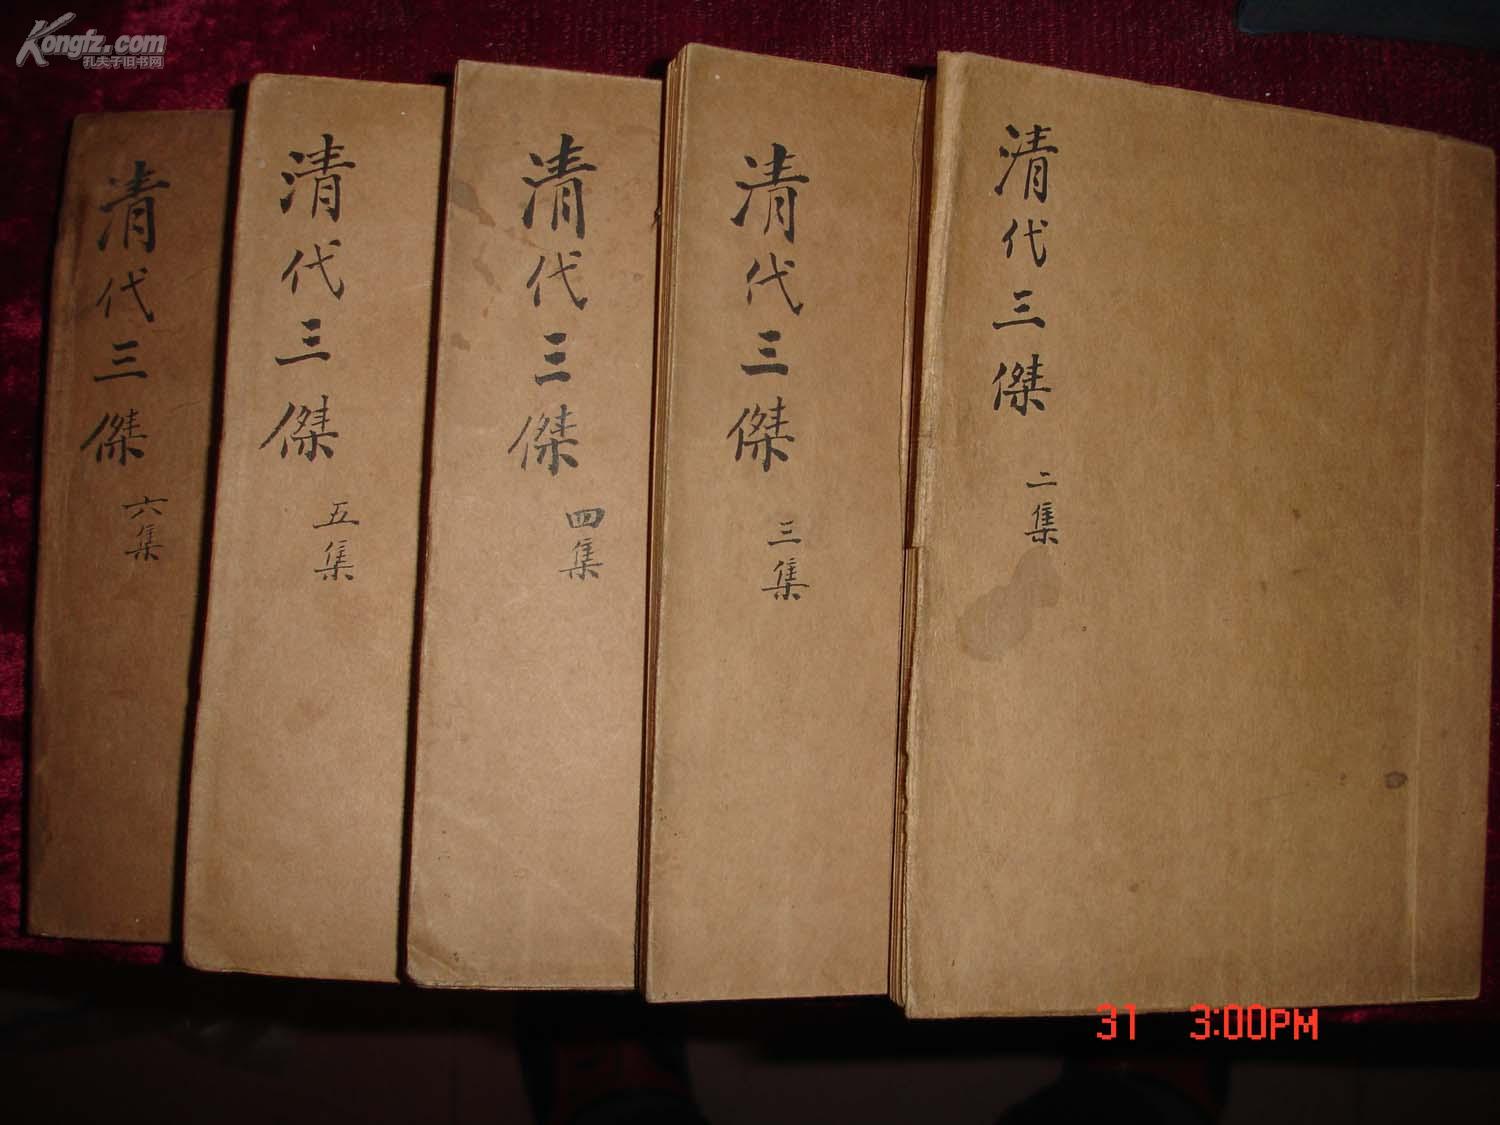 Kongfz.com
孔夫子旧书网
清代三傑
二集
清代三傑
三集
清代三傑
四集
清代三傑
五集
清代三傑
六集
31 3:00PM